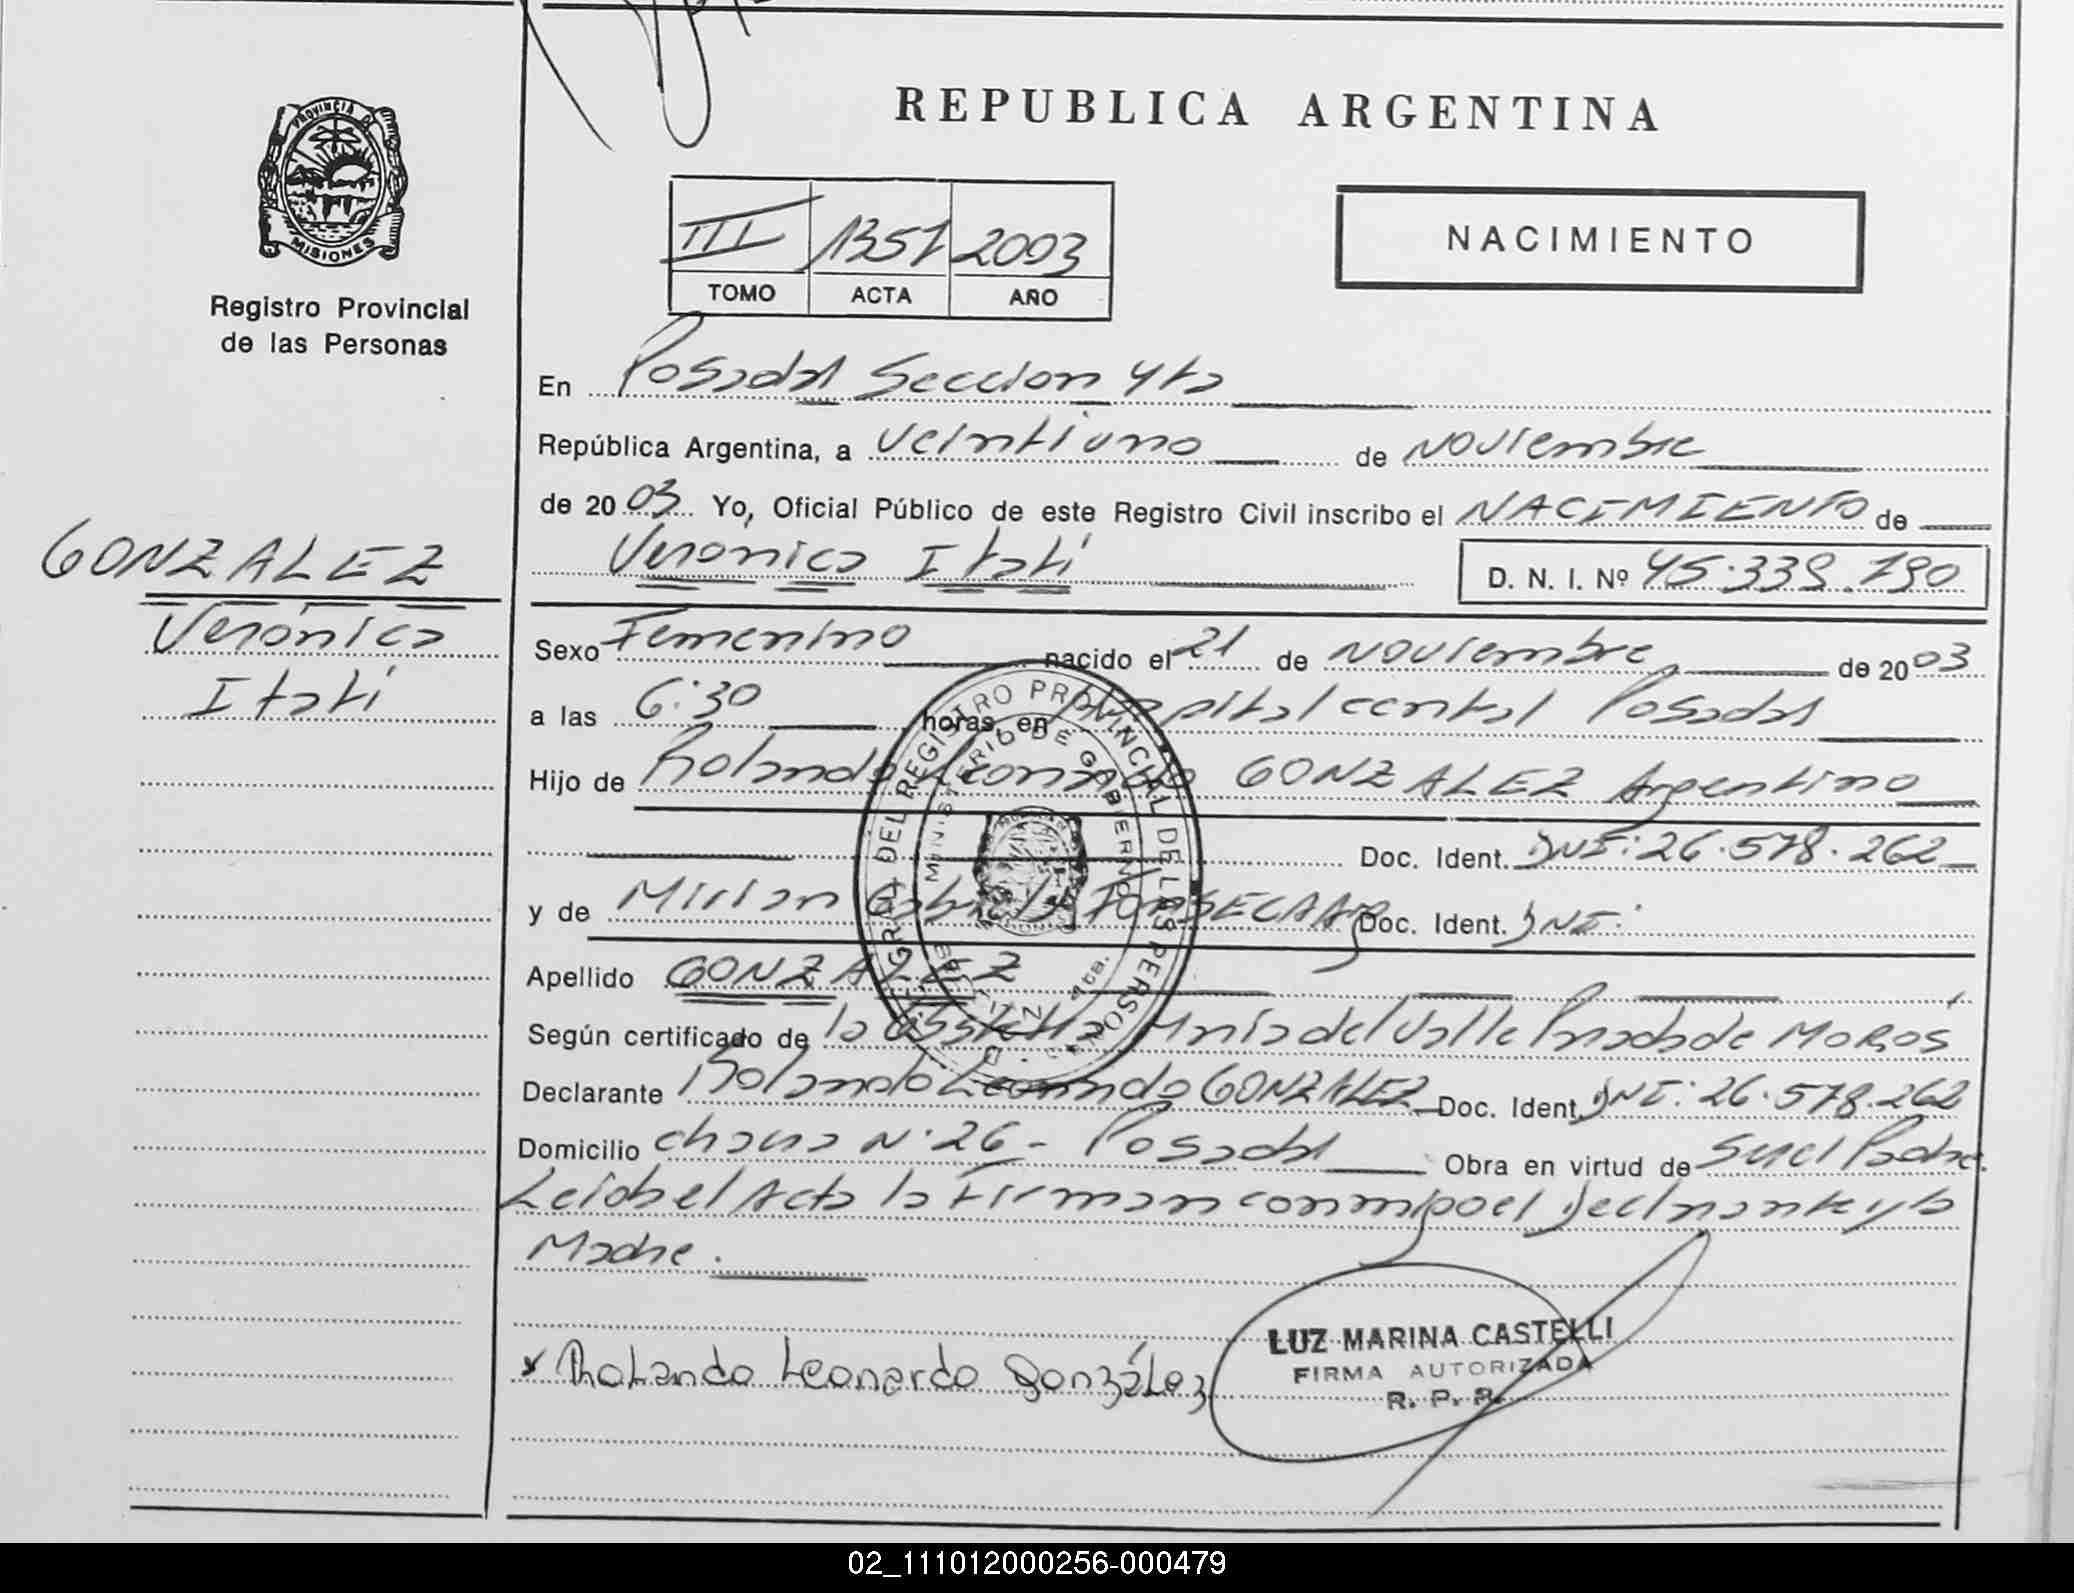 REPUBLICA ARGENTINA
PROVINCIA DE MISIONES
Registro Provincial
de las Personas
III 1357 2003
TOMO ACTA AÑO
NACIMIENTO
En Posadas Seccion 4ta
República Argentina, a veintiuno de noviembre
de 2003 Yo, Oficial Público de este Registro Civil inscribo el NACIMIENTO de
Veronica Itatí D. N. I. Nº 45.339.790
GONZALEZ
Verónica
Itatí
Sexo Femenino nacido el 21 de noviembre de 2003
a las 6:30 horas, en Hospital central Posadas
Hijo de Rolando Leonardo GONZALEZ Argentino
Doc. Ident. DNI: 26.578.262
y de Mirian Gabriela FONSECA Arg Doc. Ident. DNI:
Apellido GONZALEZ
Según certificado de la María del Valle de MOROS
Declarante Rolando Leonardo GONZALEZ Doc. Ident. DNI: 26.578.262
Domicilio chacra N° 26 - Posadas Obra en virtud de ser el Padre.
Leida el Acta la Firman conmigo el Declarante y la
Madre.
x Rolando Leonardo González
LUZ MARINA CASTELLI
FIRMA AUTORIZADA
R. P. P.
REGISTRO PROVINCIAL DE LAS PERSONAS
MINISTERIO DE GOBIERNO
4ta.
02_111012000256-000479